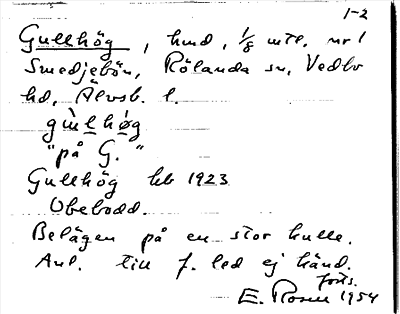 1-2
Gullhög, hmd, 1/8 mtl. nr 1
Smedjebön, Rölanda sn, Vedbo
hd, Älvsb. l.
gùlhø̀g
"på G."
Gullhög hb 1923
Obebodd.
Belägen på en stor kulle.
Anl. till f. led ej känd.
forts.
E. Rosén 1954